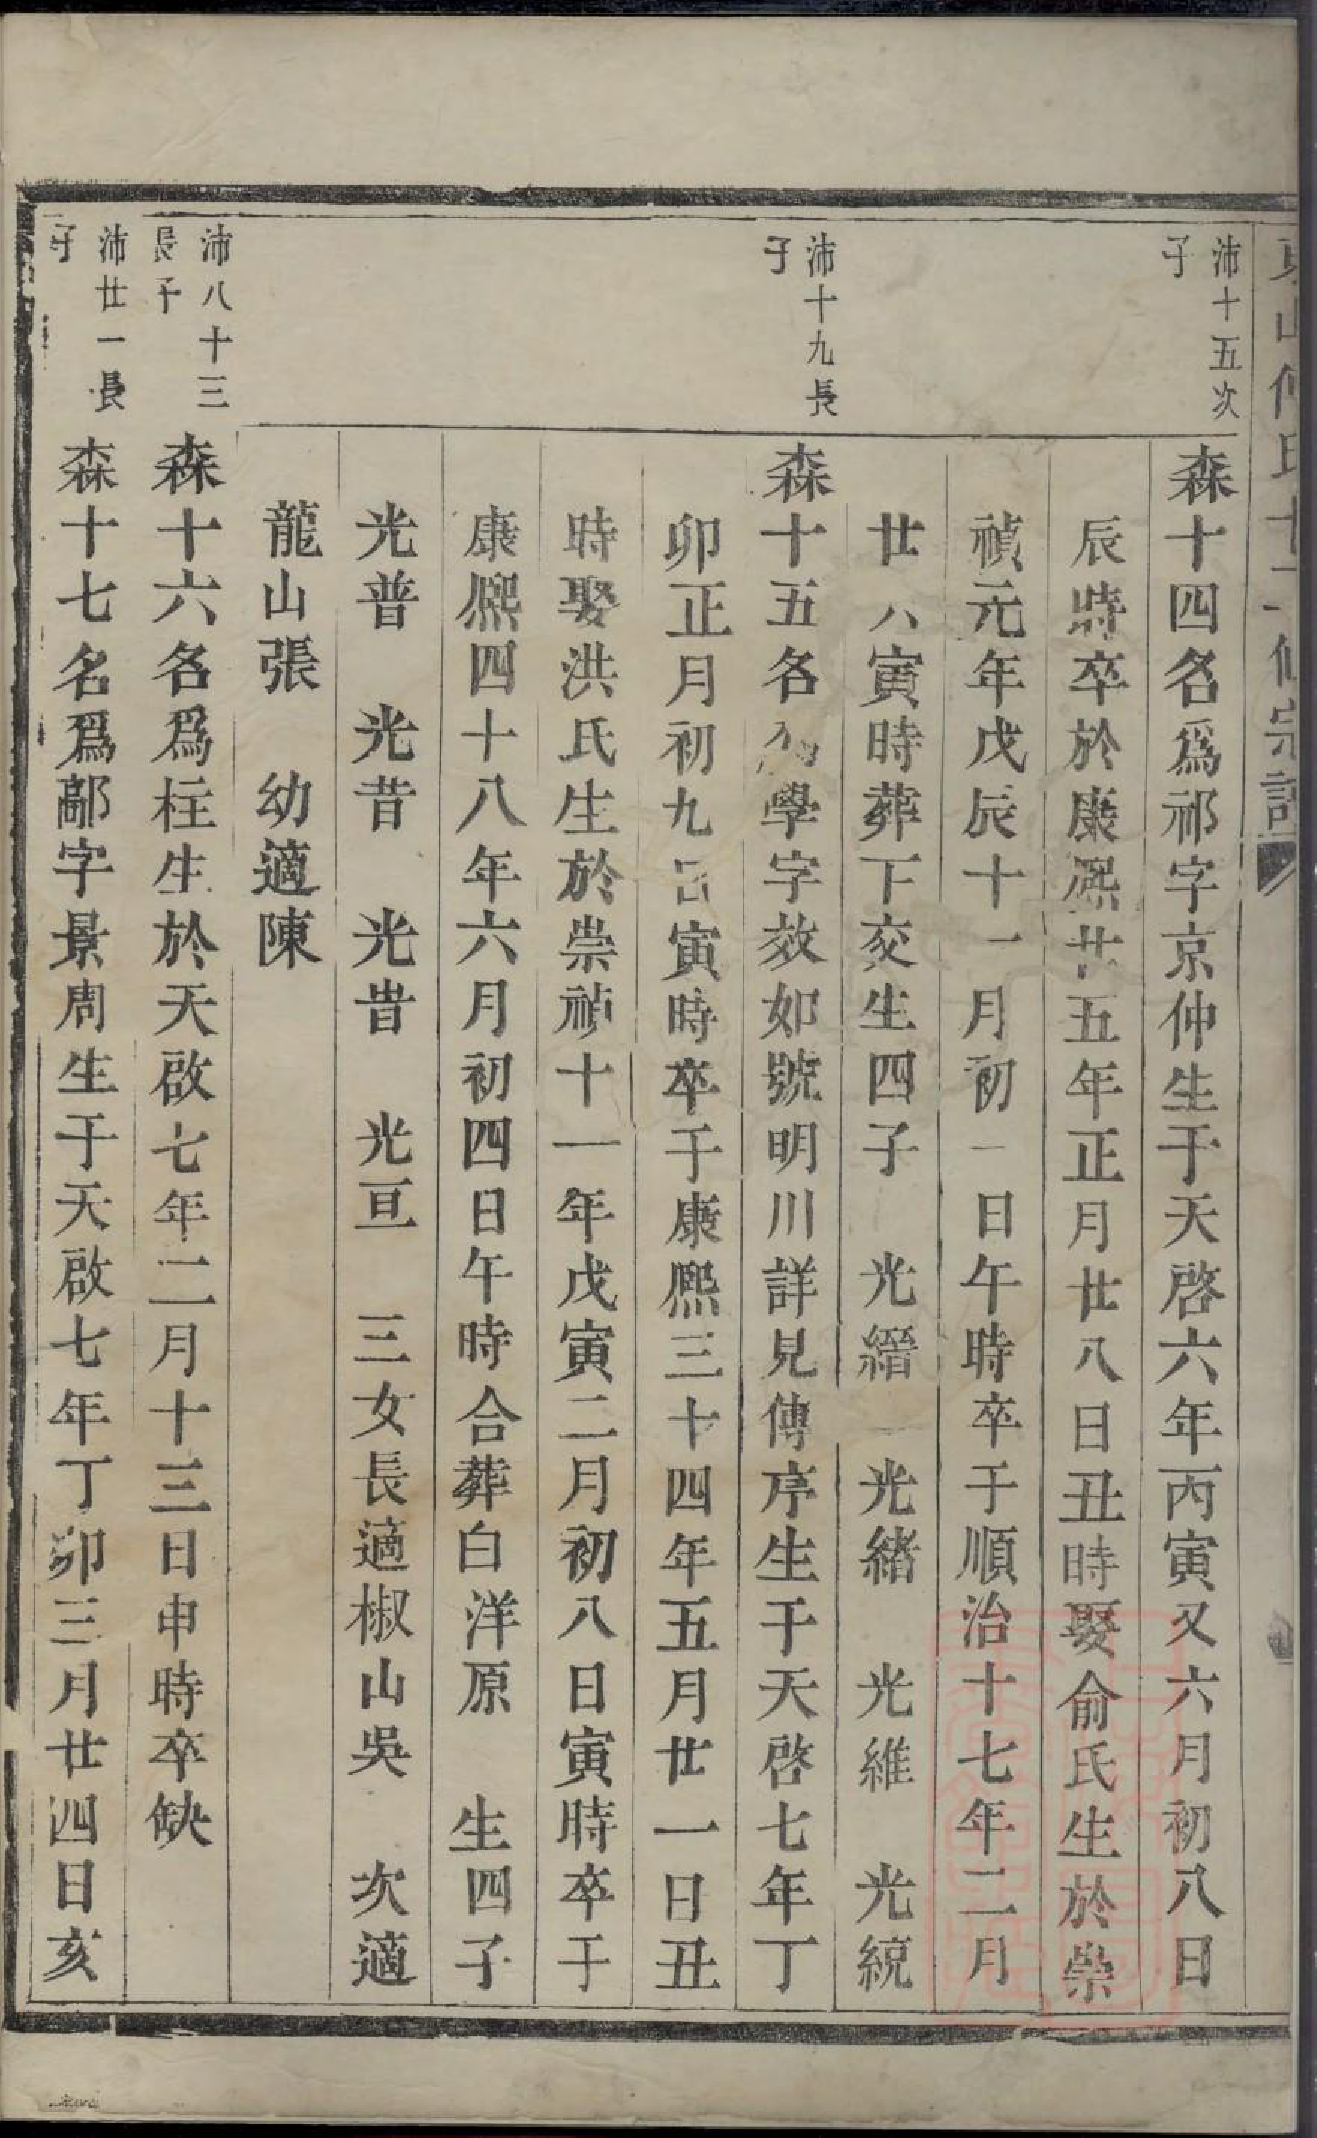 沛十五次
子
森十四名爲祁字京仲生于天啓六年丙寅又六月初八日
辰時卒於康熙廿五年正月廿八日丑時娶俞氏生於崇
禎元年戊辰十一月初一日午時卒于順治十七年二月
廿八寅時葬下亥生四子 光縉 光緒 光維 光統
沛十九長
子
森十五名學字效如號明川詳見傳序生于天啓七年丁
卯正月初九日寅時卒于康熙三十四年五月廿一日丑
時娶洪氏生於崇禎十一年戊寅二月初八日寅時卒于
康熙四十八年六月初四日午時合葬白洋原 生四子
光普 光昔 光旹 光亘 三女長適椒山吳 次適
龍山張 幼適陳
沛八十三
長子
森十六名爲柱生於天啟七年二月十三日申時卒缺
沛廿一長
子
森十七名爲鄗字景周生于天啟七年丁卯三月廿四日亥